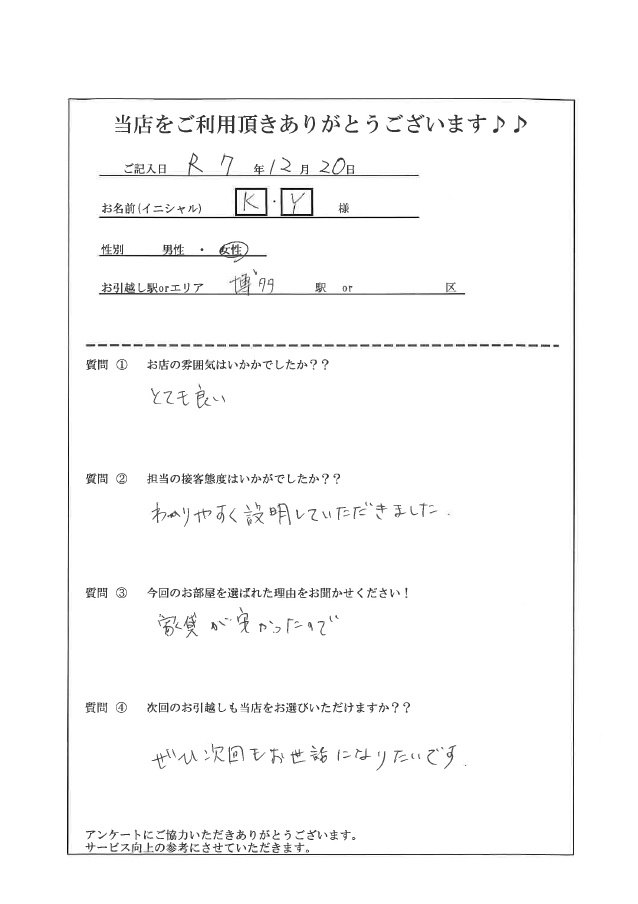 当店をご利用頂きありがとうございます♪♪
ご記入日 R 7 年 12 月 20 日
お名前(イニシャル) K ・ Y 様
性別 男性 ・ 女性
お引越し駅orエリア 博多 駅 or 区
質問 ① お店の雰囲気はいかかでしたか？？
とても良い
質問 ② 担当の接客態度はいかがでしたか？？
わかりやすく説明していただきました.
質問 ③ 今回のお部屋を選ばれた理由をお聞かせください！
家賃が安かったので
質問 ④ 次回のお引越しも当店をお選びいただけますか？？
ぜひ次回もお世話になりたいです.
アンケートにご協力いただきありがとうございます。
サービス向上の参考にさせていただきます。